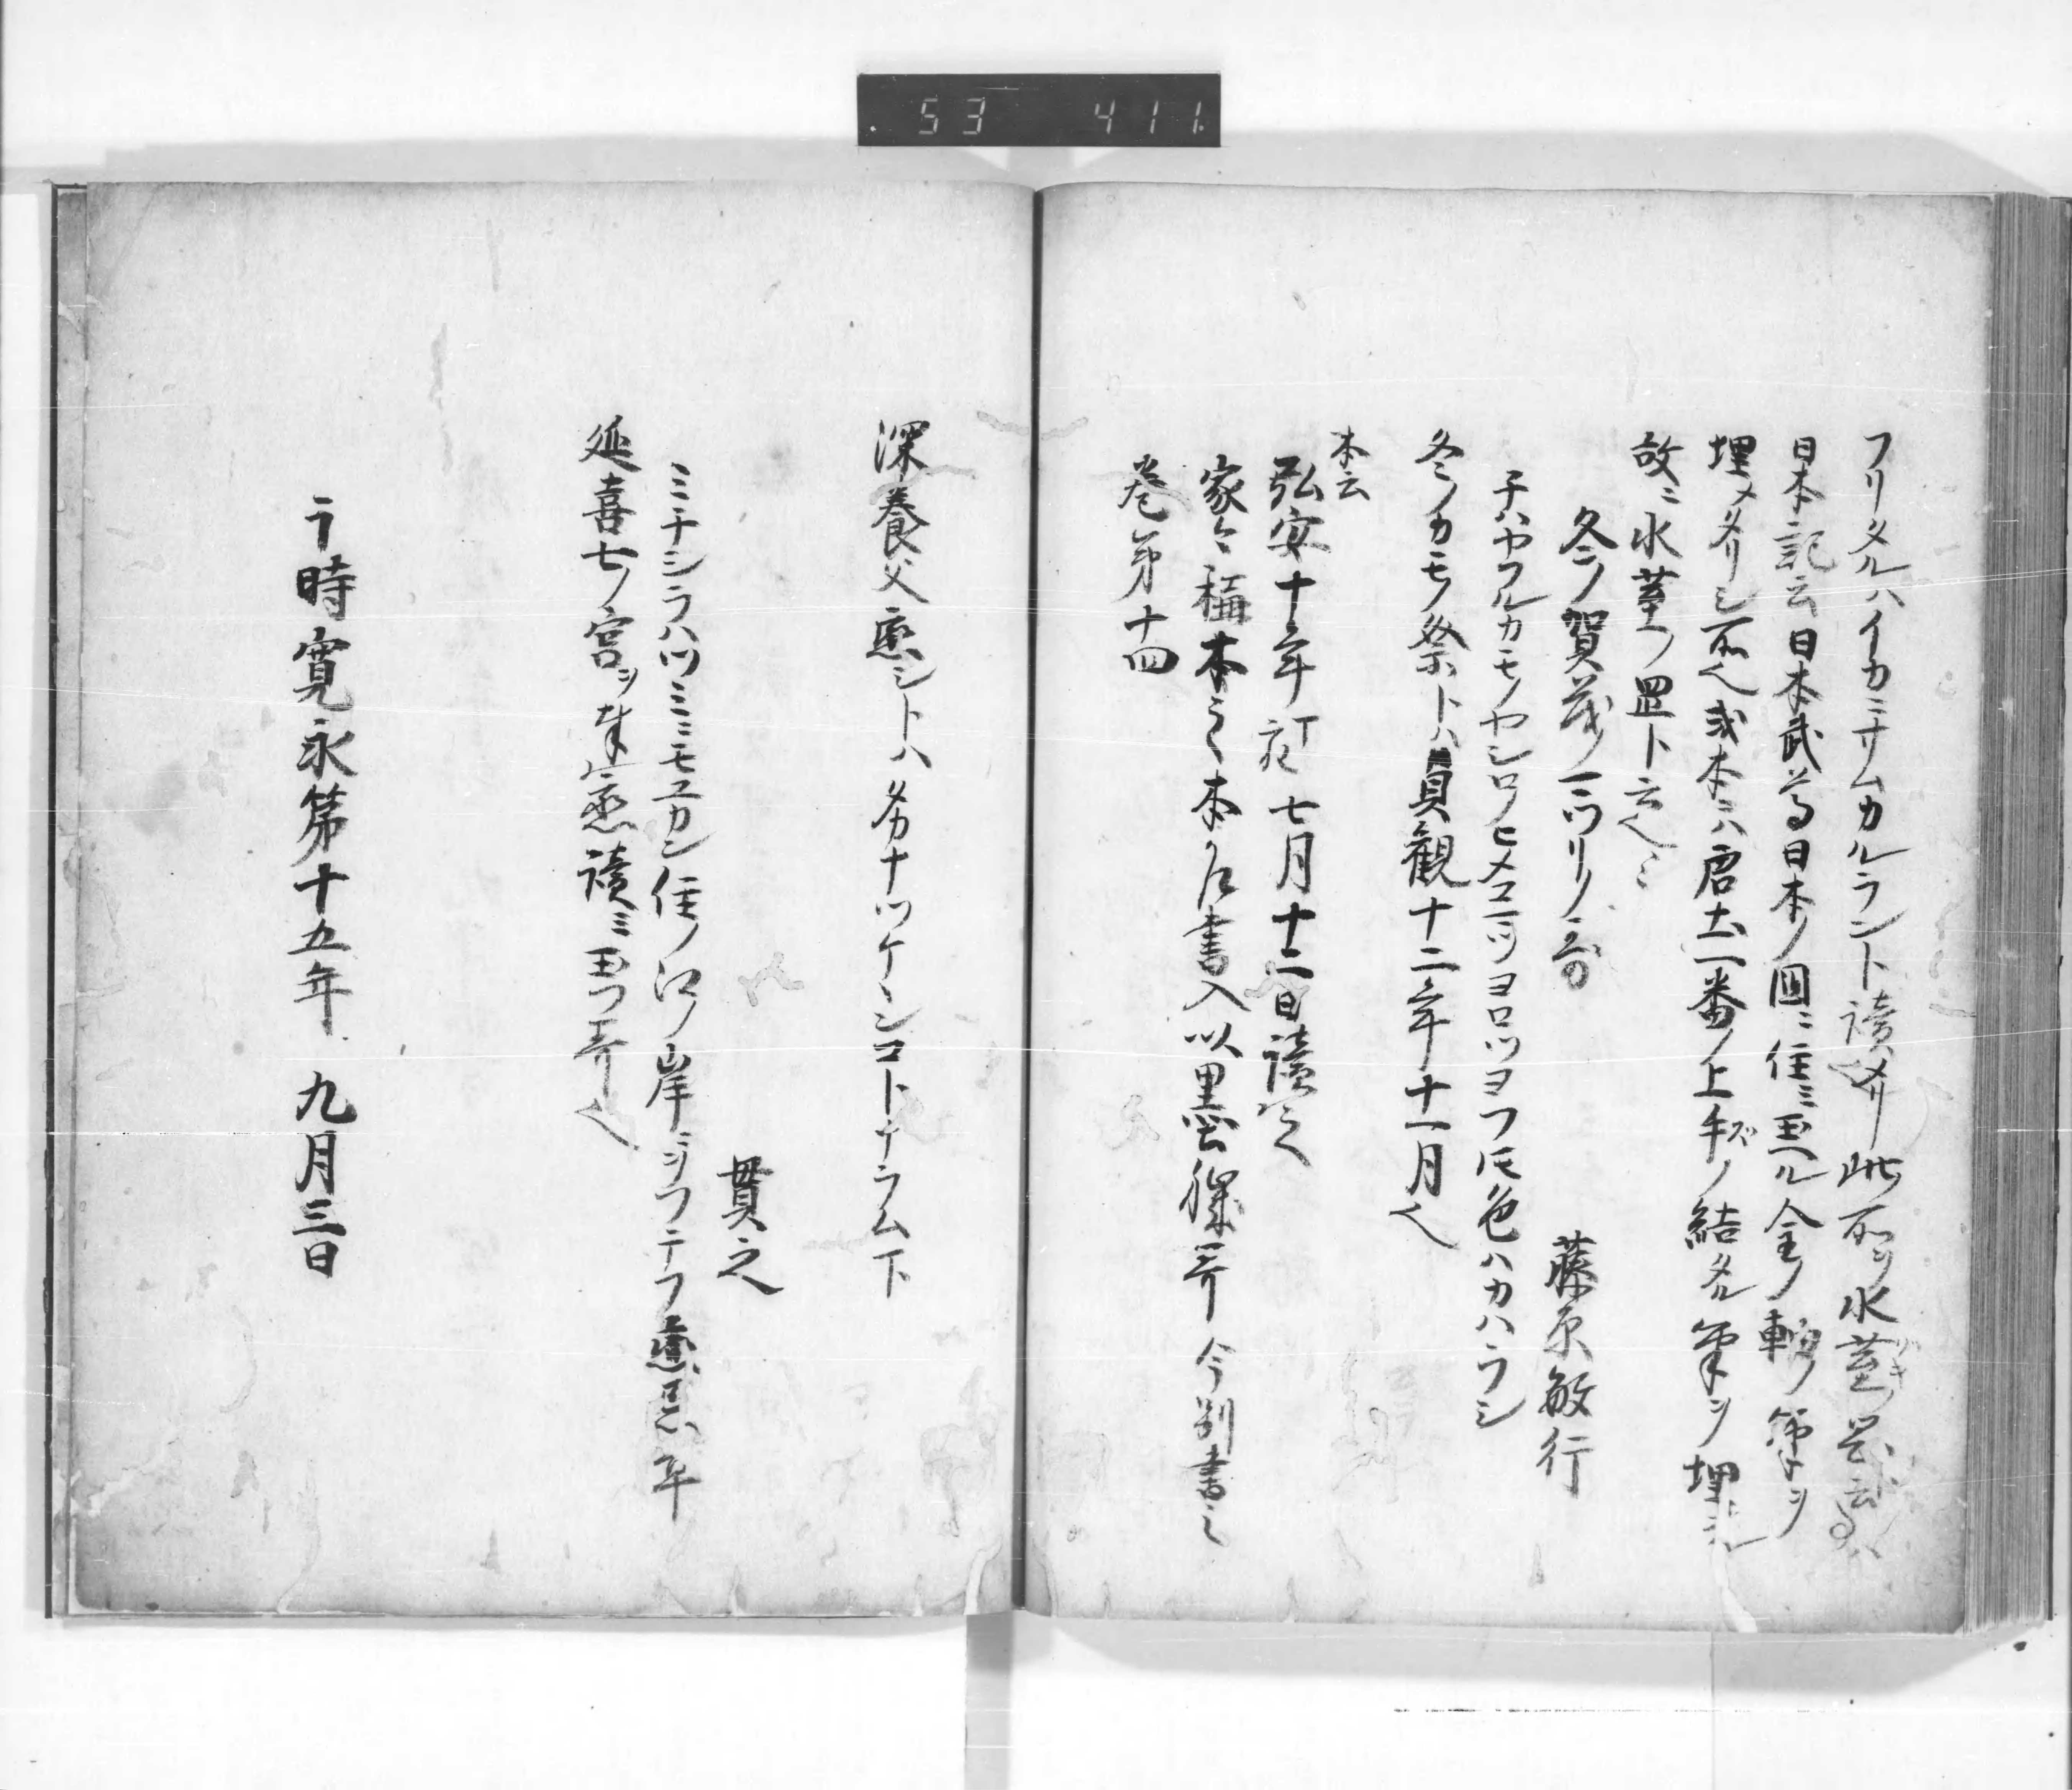 53 411
フリタルハイカニサムカルラント讀メリ此所ヲ水茎ノ岡ト云事ハ
日本記云日本武尊日本ノ國ニ住ミ玉ヘル金ノ軸ノ筆ヲ
埋メタリシ所也或本ニハ唐土一番ノ上手ズノ結タル筆ヲ埋
故ニ水茎ノ岡ト云也
冬ノ賀茂ノマツリノ哥
藤原敏行
チハヤフルカモノヤシロノヒメコマツヨロツヨフトモ色ハカハラシ
冬ノカモノ祭トハ貞観十二年十一月也
本云
弘安十年 七月十二日讀之
家々稱本之本ヲハ書入以墨滅哥 今別書之
巻第十四
深養父恋シトハタカナツケケンコトナラム下
貫之
ミチシラハツミニモユカン住ノ江ノ岸ニヲフテフ恋忘草
延喜七ノ宮ヲ恋讀ミ玉フ哥也
于時寛永第十五年 九月三日